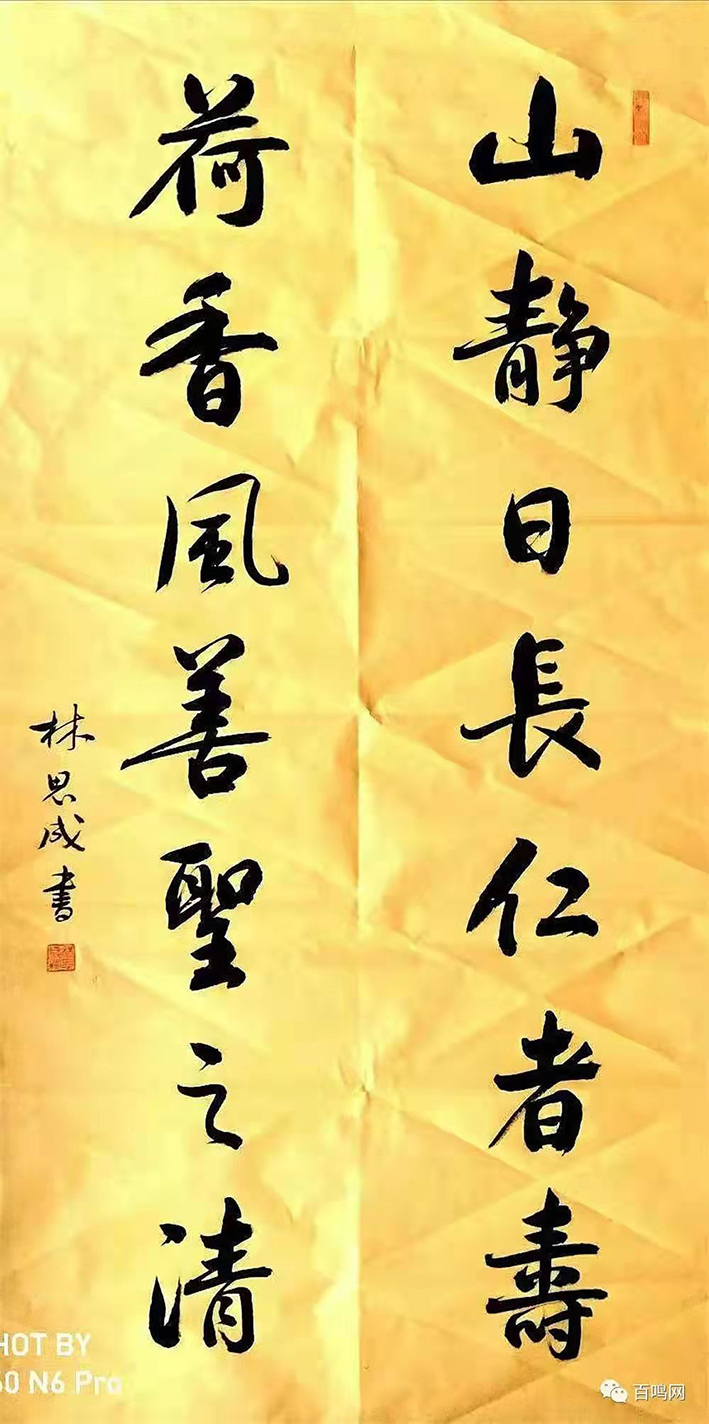 山靜日長仁者壽
荷香風善聖之清
林思成書
HOT BY
60 N6 Pro
百鸣网